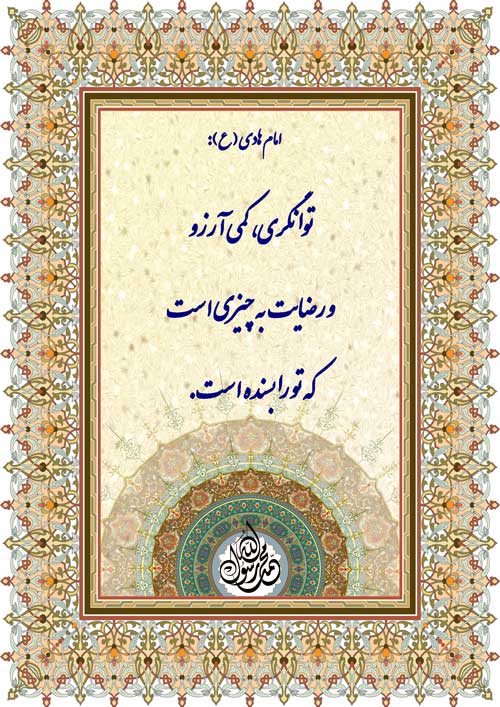 امام هادی (ع):
توانگری، کمی آرزو
و رضایت به چیزی است
که تو را بسنده است.
محمد رسول الله